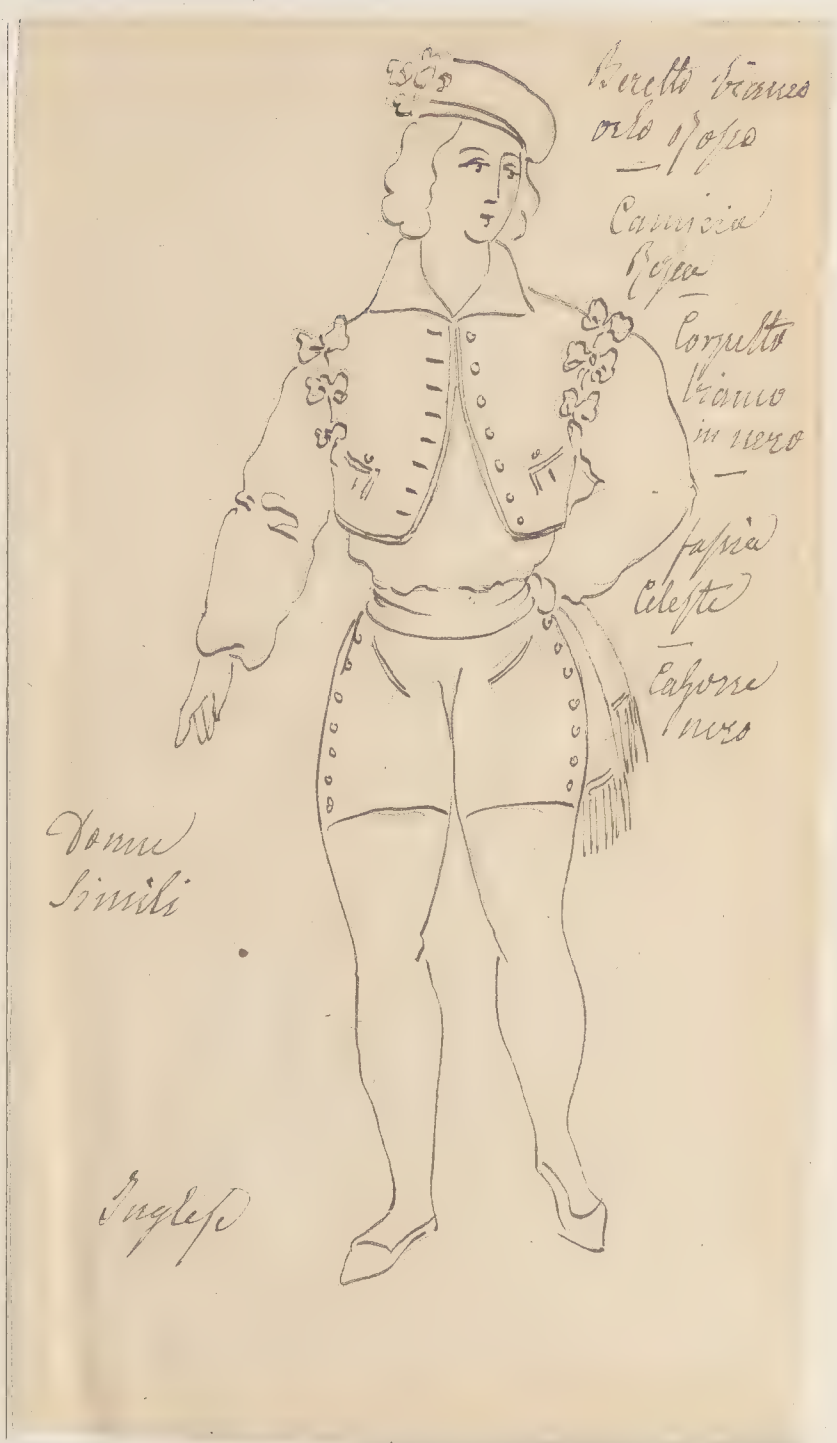 Beretto bianco
orlo Rosso
Camicia
Rossa
Corpetto
bianco
in nero
fassia
Celeste
Calzone
nero
Donne
Simili
Inglese